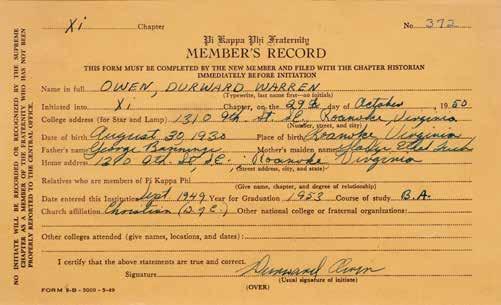 Xi Chapter No. 372
Pi Kappa Phi Fraternity
MEMBER'S RECORD
THIS FORM MUST BE COMPLETED BY THE NEW MEMBER AND FILED WITH THE CHAPTER HISTORIAN
IMMEDIATELY BEFORE INITIATION
Name in full OWEN, DURWARD WARREN
(Typewrite, last name first—no initials)
Initiated into Xi Chapter, on the 29th day of October, 1950
College address (for Star and Lamp) 1310 9th St. S.E. Roanoke, Virginia
(Number, street, and city)
Date of birth August 30 1930 Place of birth Roanoke, Virginia
Father's name George Mother's maiden name Gladys
Home address St., S.E. Roanoke Virginia
(Street address, city, and state)
Relatives who are members of Pi Kappa Phi
(Give name, chapter, and degree of relationship)
Date entered this Institution Sept 1949 Year for Graduation 1953 Course of study B.A.
Church affiliation Christian Other national college or fraternal organizations:
Other colleges attended (give names, locations, dates):
I certify that the above statements are true and correct.
Signature Durward Owen
(Usual signature of initiate)
FORM (OVER)
NO INITIATE WILL BE RECORDED OR RECOGNIZED BY THE SUPREME
CHAPTER AS A MEMBER OF THE FRATERNITY WHO HAS NOT BEEN
PROPERLY REPORTED TO THE CENTRAL OFFICE.